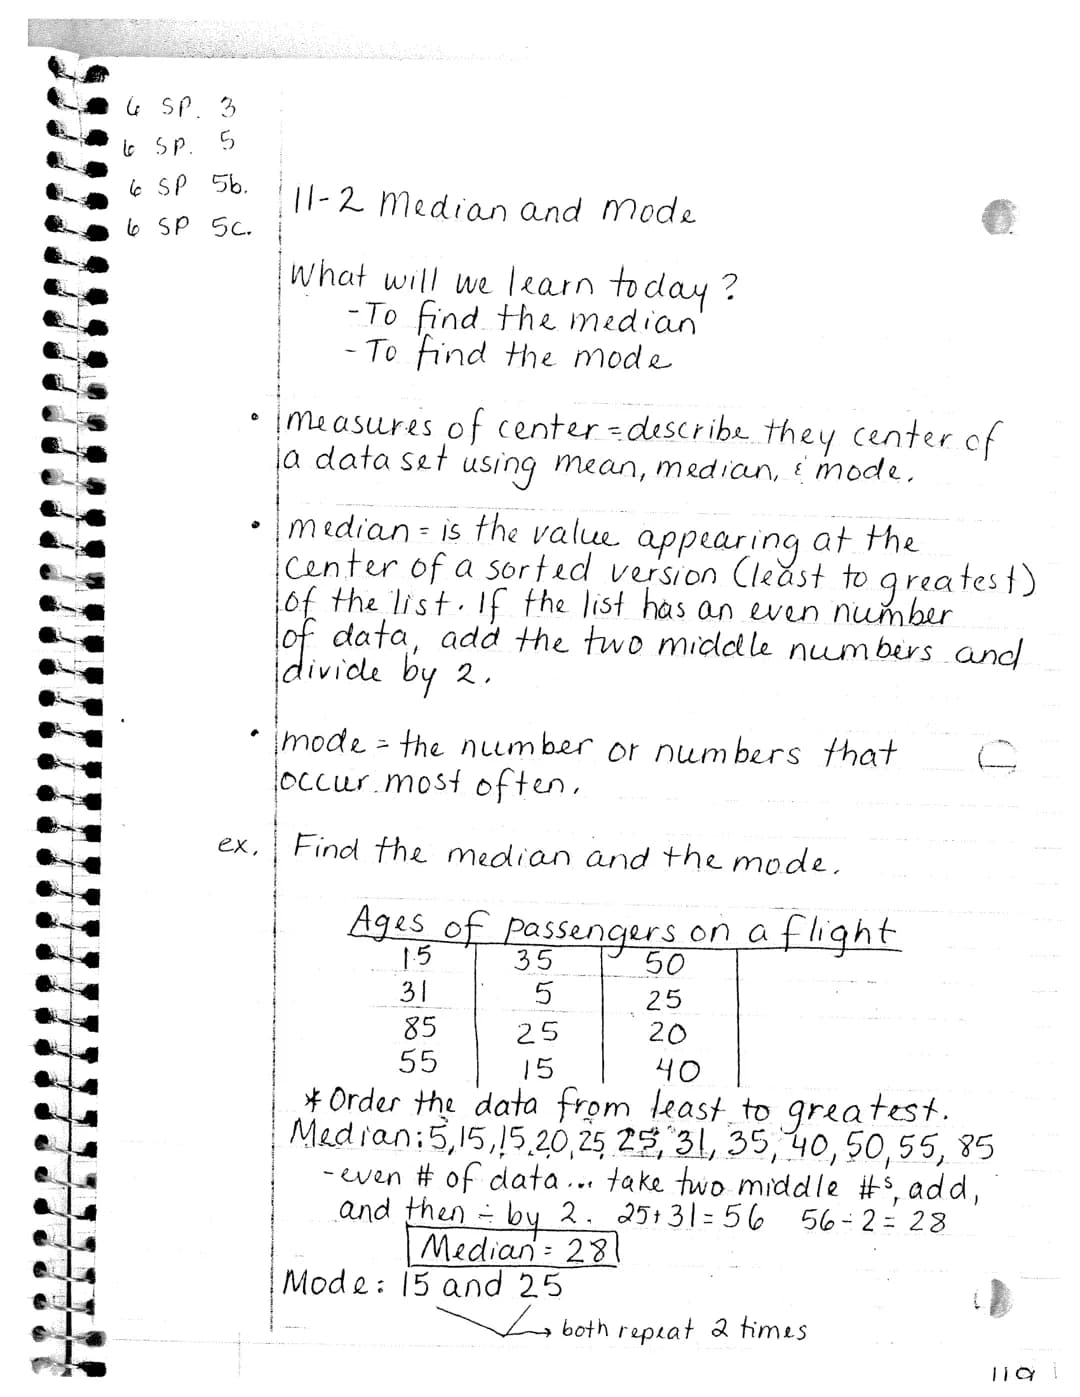 6 SP. 3
6 SP. 5
6 SP 5b.
6 SP 5c.
11-2 Median and Mode
What will we learn today?
-To find the median
-To find the mode
• measures of center = describe they center of
a data set using mean, median, & mode.
• median = is the value appearing at the
center of a sorted version (least to greatest)
of the list. If the list has an even number
of data, add the two middle numbers and
divide by 2.
• mode = the number or numbers that
occur most often.
ex. Find the median and the mode.
Ages of passengers on a flight
15 35 50
31 5 25
85 25 20
55 15 40
* Order the data from least to greatest.
Median: 5, 15, 15, 20, 25, 25, 31, 35, 40, 50, 55, 85
-even # of data... take two middle #s, add,
and then ÷ by 2. 25+31=56 56÷2=28
Median = 28
Mode: 15 and 25
both repeat 2 times
119